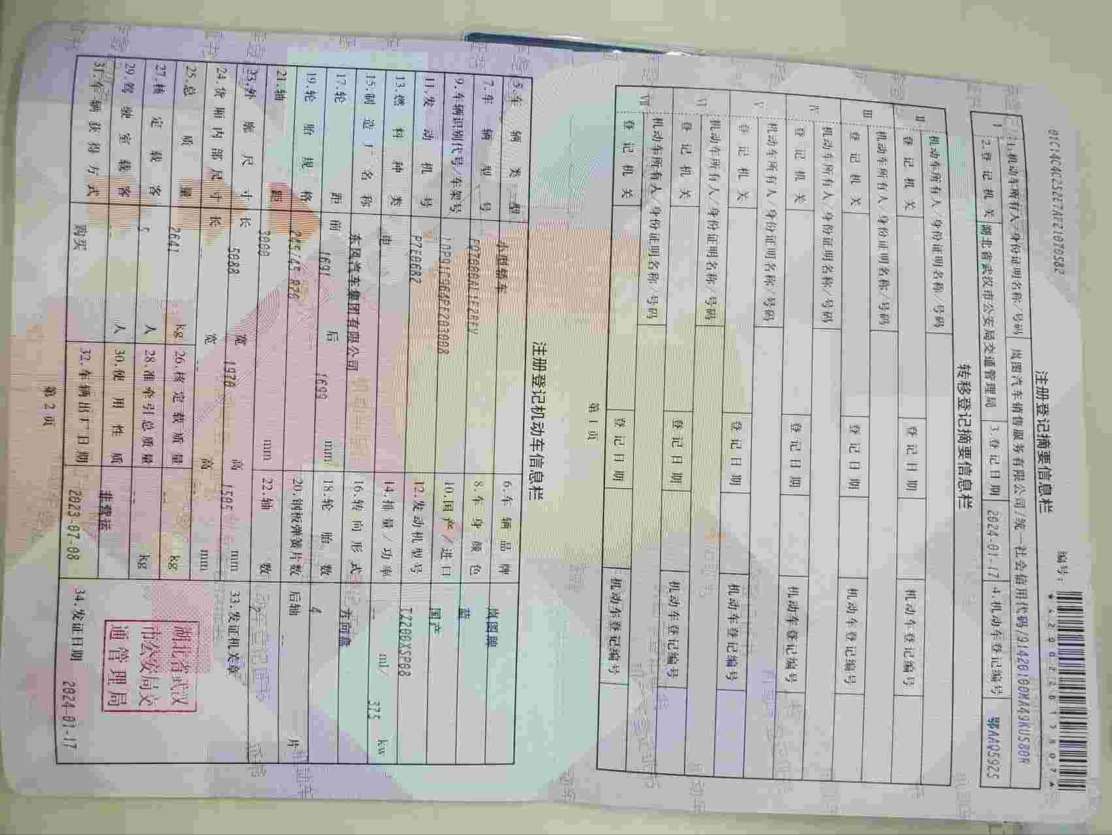 编号：
注册登记摘要信息栏
1.机动车所有人/身份证明名称/号码 岚图汽车销售服务有限公司/统一社会信用代码/91420100MA49KUS80R
2.登记机关 湖北省武汉市公安局交通管理局 3.登记日期 2024-01-17 4.机动车登记编号 鄂AAQ5925
转移登记摘要信息栏
II 机动车所有人/身份证明名称/号码
登记机关 登记日期 机动车登记编号
III 机动车所有人/身份证明名称/号码
登记机关 登记日期 机动车登记编号
IV 机动车所有人/身份证明名称/号码
登记机关 登记日期 机动车登记编号
V 机动车所有人/身份证明名称/号码
登记机关 登记日期 机动车登记编号
VI 机动车所有人/身份证明名称/号码
登记机关 登记日期 机动车登记编号
VII 机动车所有人/身份证明名称/号码
登记机关 登记日期 机动车登记编号
第1页
注册登记机动车信息栏
5.车辆类型 小型轿车 6.车辆品牌 岚图牌
7.车辆型号 8.车身颜色 蓝
9.车辆识别代号/车架号 10.国产/进口 国产
11.发动机号 P7E06B2 12.发动机型号 TZ200XSPB8
13.燃料种类 电 14.排量/功率 -- ml/ 375 kw
15.制造厂名称 东风汽车集团有限公司 16.转向形式 方向盘
17.轮距 前 1691 后 1699 mm 18.轮胎数 4
19.轮胎规格 245/45 R20 20.钢板弹簧片数 后轴 -- 片
21.轴距 3000 mm 22.轴数 2
23.外廓尺寸 长 5088 宽 1970 高 1505 mm 33.发证机关章
24.货厢内部尺寸 长 宽 高 mm
25.总质量 2641 kg 26.核定载质量 -- kg
27.核定载客 5 人 28.准牵引总质量 -- kg
29.驾驶室载客 人 30.使用性质 非营运
31.车辆获得方式 购买 32.车辆出厂日期 2023-07-08 34.发证日期 2024-01-17
湖北省武汉
市公安局交
通管理局
第2页